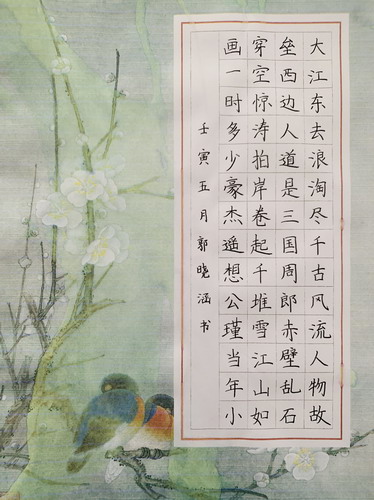 大江东去浪淘尽千古风流人物故
垒西边人道是三国周郎赤壁乱石
穿空惊涛拍岸卷起千堆雪江山如
画一时多少豪杰遥想公瑾当年小
壬寅五月郭晓涵书